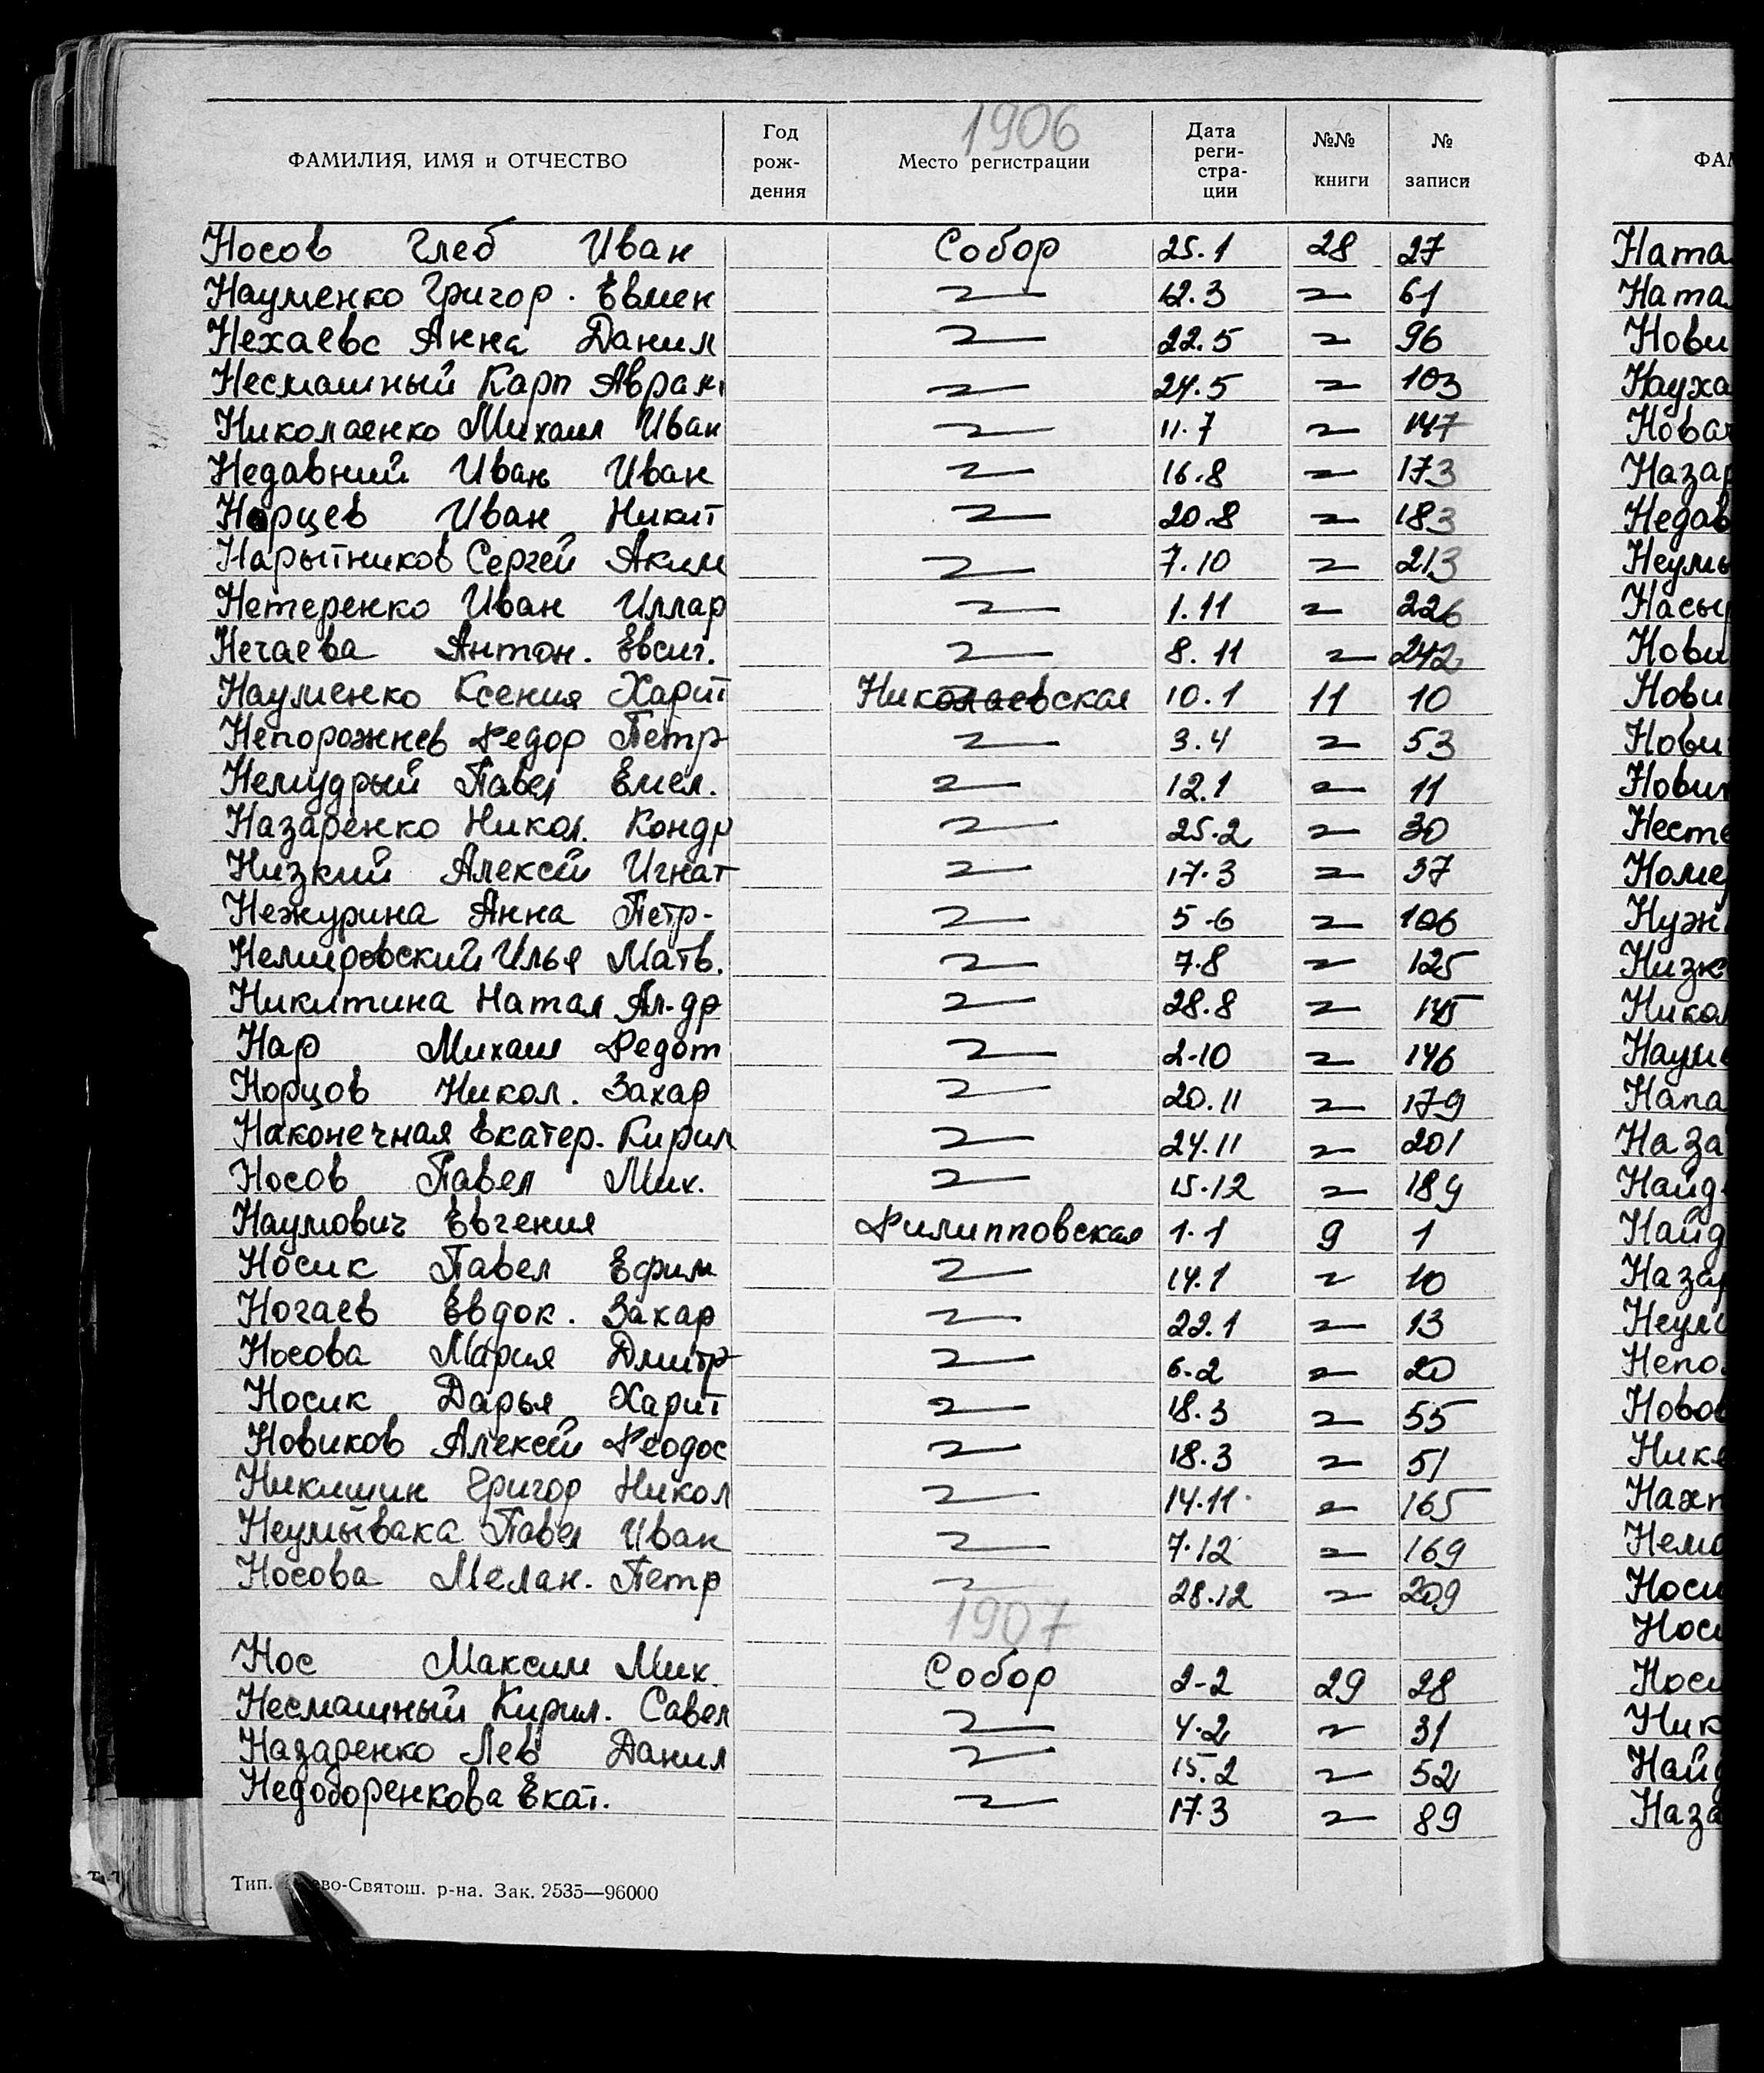 1906
ФАМИЛИЯ, ИМЯ и ОТЧЕСТВО Год рождения Место регистрации Дата реги-стра-ции №№ книги № записи
Носов Глеб Иван Собор 25.1 28 27
Науменко Григор. Евмен 〃 12.3 〃 61
Нехаева Анна Данил 〃 22.5 〃 96
Несмашный Карп Аврам 〃 24.5 〃 103
Николаенко Михаил Иван 〃 11.7 〃 147
Недавний Иван Иван 〃 16.8 〃 173
Норцев Иван Никит 〃 20.8 〃 183
Нарытников Сергей Аким 〃 7.10 〃 213
Нетеренко Иван Иллар 〃 1.11 〃 226
Нечаева Антон. Евсиг. 〃 8.11 〃 242
Науменко Ксения Харит Николаевская 10.1 11 10
Непорожнев Федор Петр 〃 3.4 〃 53
Немудрый Павел Емел. 〃 12.1 〃 11
Назаренко Никол. Кондр 〃 25.2 〃 30
Низкий Алексей Игнат 〃 17.3 〃 37
Нежурина Анна Петр. 〃 5-6 〃 106
Немировский Илья Матв. 〃 7.8 〃 125
Никитина Натал Ал-др 〃 28.8 〃 145
Нар Михаил Федот 〃 2-10 〃 146
Норцов Никол. Захар 〃 20.11 〃 179
Наконечная Екатер. Кирил 〃 24.11 〃 201
Носов Павел Мих. 〃 15.12 〃 189
Наумович Евгения Филипповская 1.1 9 1
Носик Павел Ефим 〃 14.1 〃 10
Ногаев Евдок. Захар 〃 22.1 〃 13
Носова Мария Дмитр 〃 6.2 〃 20
Носик Дарья Харит 〃 18.3 〃 55
Новиков Алексей Феодос 〃 18.3 〃 51
Никишин Григор Никол 〃 14.11 〃 165
Неумывака Павел Иван 〃 7.12 〃 169
Носова Мелан. Петр 〃 28.12 〃 209
1907
Нос Максим Мих. Собор 2-2 29 28
Несмашный Кирил. Савел 〃 4.2 〃 31
Назаренко Лев Данил 〃 15.2 〃 52
Недоборенкова Екат. 〃 17.3 〃 89
Тип. во-Святош. р-на. Зак. 2535—96000